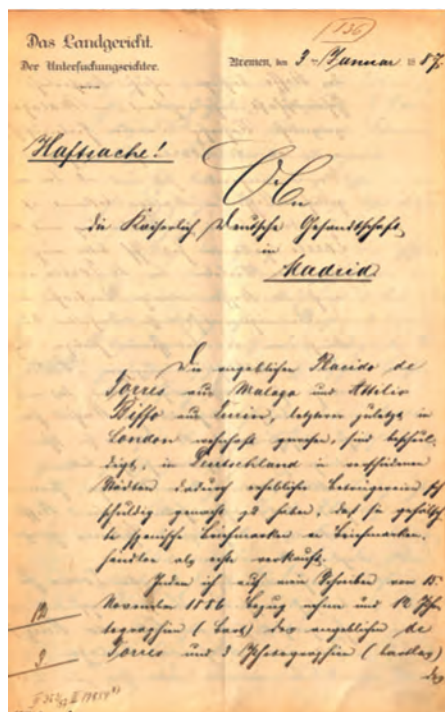 I36
Das Landgericht.
Der Untersuchungsrichter.
Bremen, den 3ten Januar 1887.
Haftsache!
An
die Kaiserlich Deutsche Gesandtschaft
in
Madrid
Die angeblichen Racido de
Torres aus Malaga und Attilio
Biffo aus, letzterer zuletzt in
London wohnhaft gewesen, sind beschul-
digt, in Deutschland in verschiedenen
Städten dadurch erheblicher Betrügereien sich
schuldig gemacht zu haben, daß sie gefälsch-
te spanische Briefmarken an Briefmarken-
händler als echte verkauft.
Indem ich auf mein Schreiben vom 15.
November 1886 Bezug nehme und 12 Pho-
tographien (bart) des angeblichen de
Torres und 3 Photographien (bartlos)
des
12
3